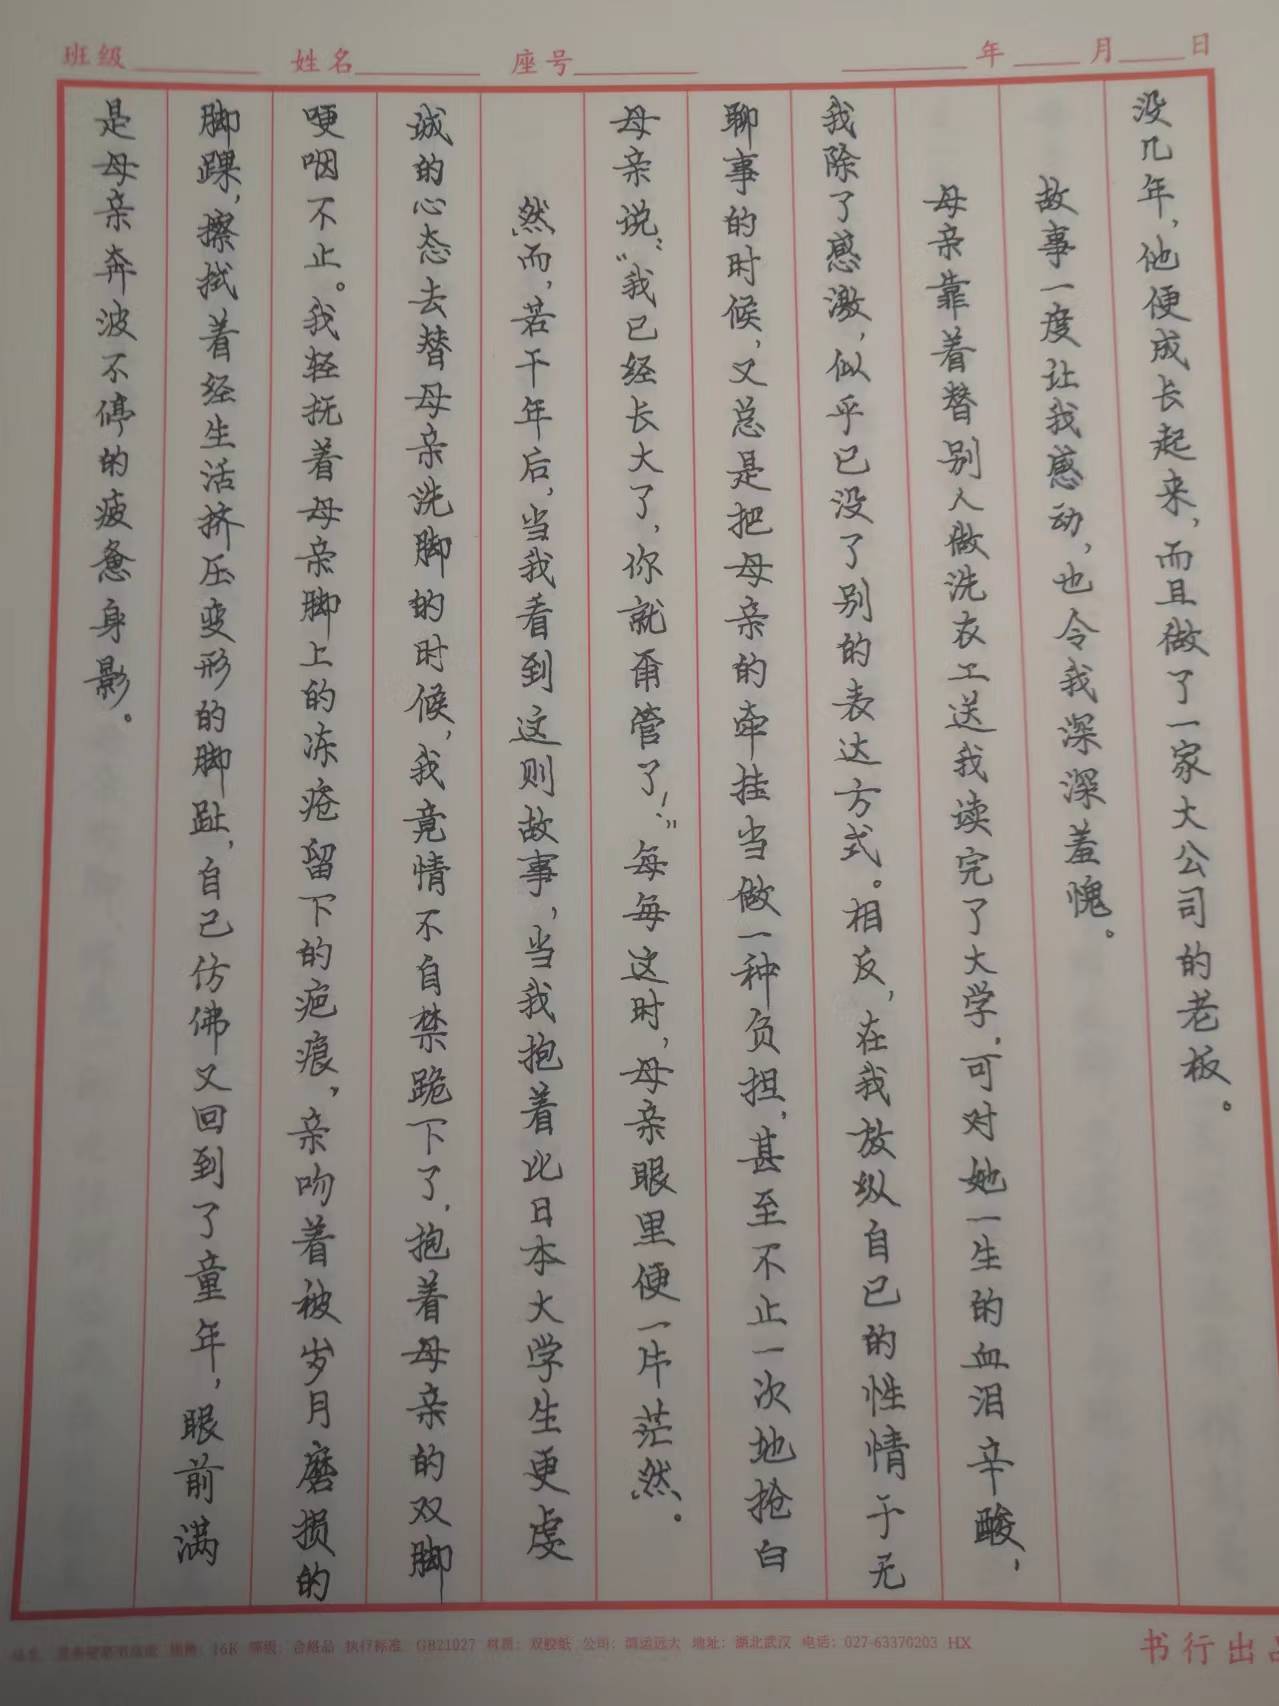 班级 姓名 座号 年 月 日
没几年，他便成长起来，而且做了一家大公司的老板。
故事一度让我感动，也令我深深羞愧。
母亲靠着替别人做洗衣工送我读完了大学。可对她一生的血泪辛酸，
我除了感激，似乎已没了别的表达方式。相反，在我放纵自己的性情于无
聊事的时候，又总是把母亲的牵挂当做一种负担，甚至不止一次地抢白
母亲说：“我已经长大了，你就甭管了！”每每这时，母亲眼里便一片茫然。
然而，若干年后，当我看到这则故事，当我抱着比日本大学生更虔
诚的心态去替母亲洗脚的时候，我竟情不自禁跪下了，抱着母亲的双脚
哽咽不止。我轻抚着母亲脚上的冻疮留下的疤痕，亲吻着被岁月磨损的
脚踝，擦拭着经生活挤压变形的脚趾，自己仿佛又回到了童年，眼前满
是母亲奔波不停的疲惫身影。
16K 等级：合格品 执行标准 GB21027 材质：双胶纸 公司：源运远大 地址：湖北武汉 电话：027-63370203 HX
书行出品